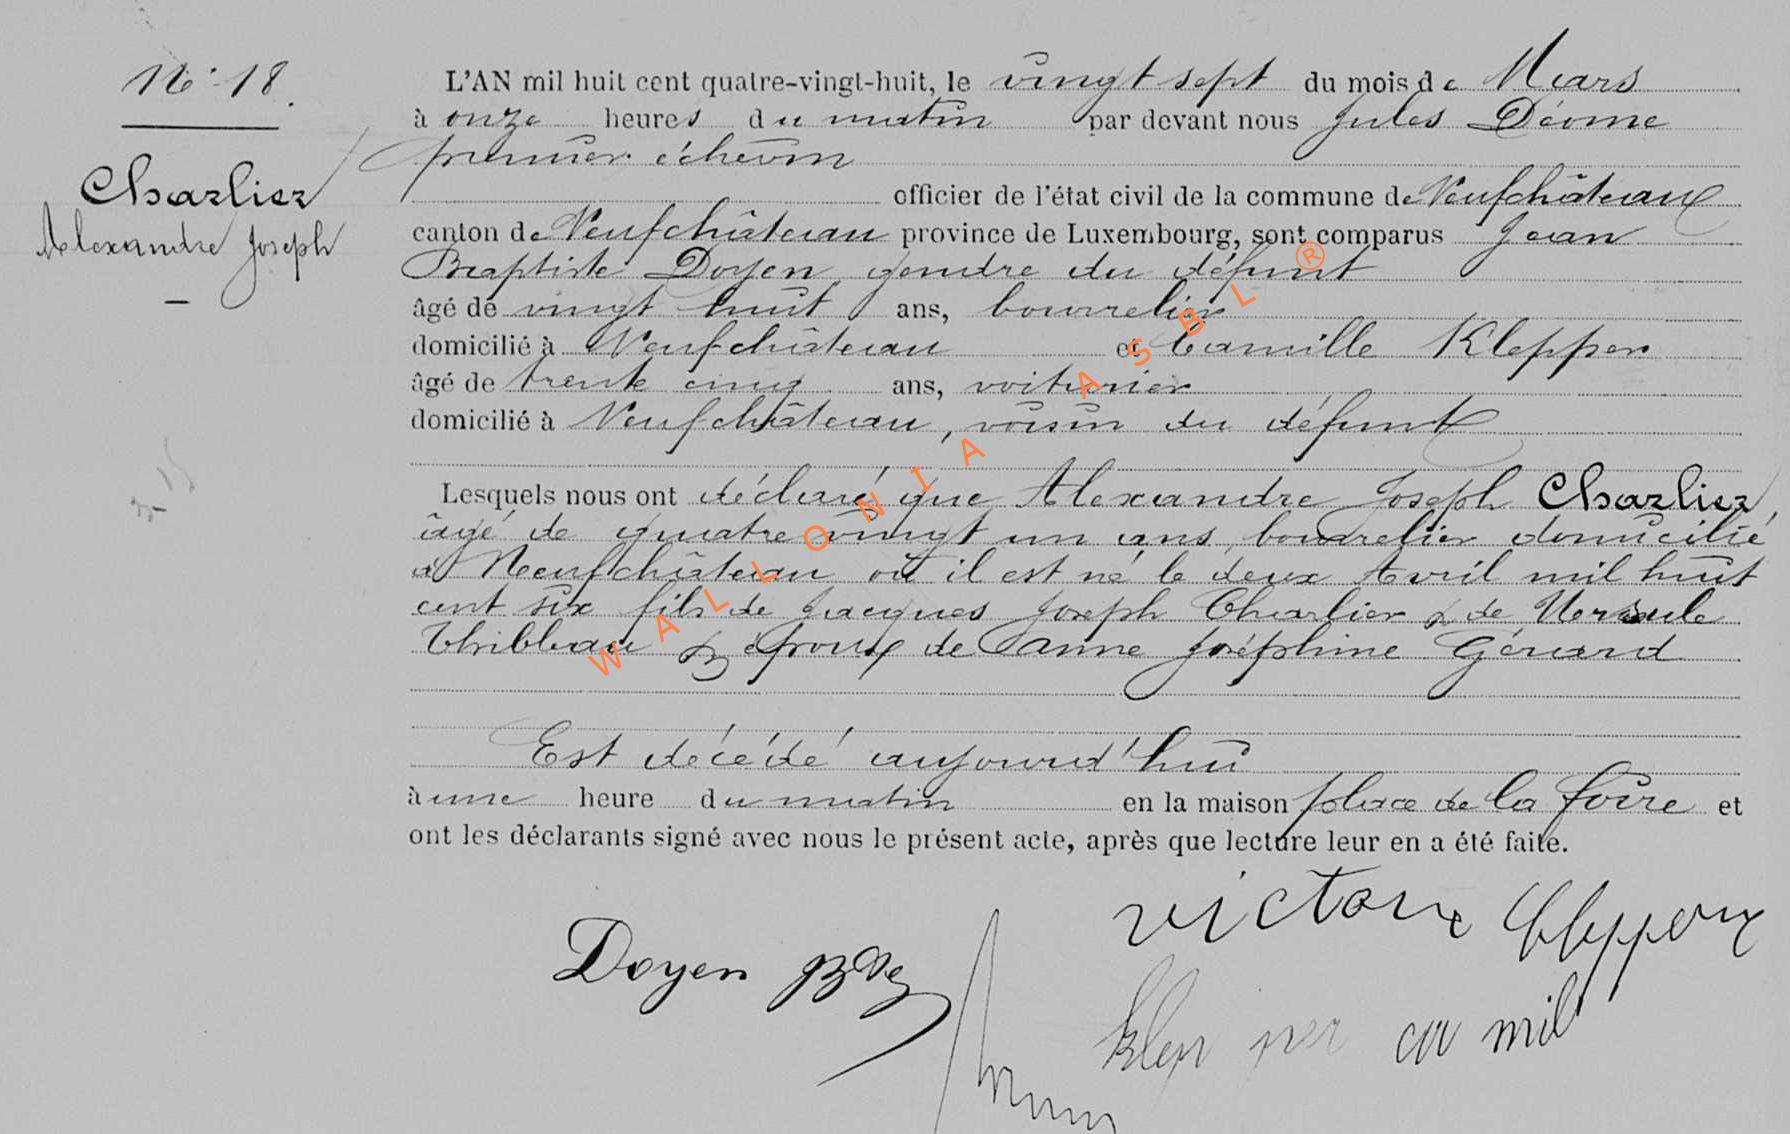 N° 18.
Charlier
Alexandre Joseph
L'AN mil huit cent quatre-vingt-huit, le vingt sept du mois de Mars
à onze heures du matin par devant nous Jules Déome
premier échevin
officier de l'état civil de la commune de Neufchâteau
canton de Neufchâteau province de Luxembourg, sont comparus Jean
Baptiste Doyen gendre du défunt
âgé de vingt huit ans, bourrelier
domicilié à Neufchâteau et Camille Klepper
âgé de trente cinq ans, voiturier
domicilié à Neufchâteau, voisin du défunt
Lesquels nous ont déclaré que Alexandre Joseph Charlier,
âgé de quatre vingt un ans, bourrelier domicilié
à Neufchâteau où il est né le deux Avril mil huit
cent six fils de Jacques Joseph Charlier & de Ursule
Thibleau & époux de Anne Joséphine Gérard
Est décédé aujourd'hui
à une heure du matin en la maison place de la foire et
ont les déclarants signé avec nous le présent acte, après que lecture leur en a été faite.
victor Klepper
Doyen Bte
klep per ca mil
WALLONIA ASBL ®